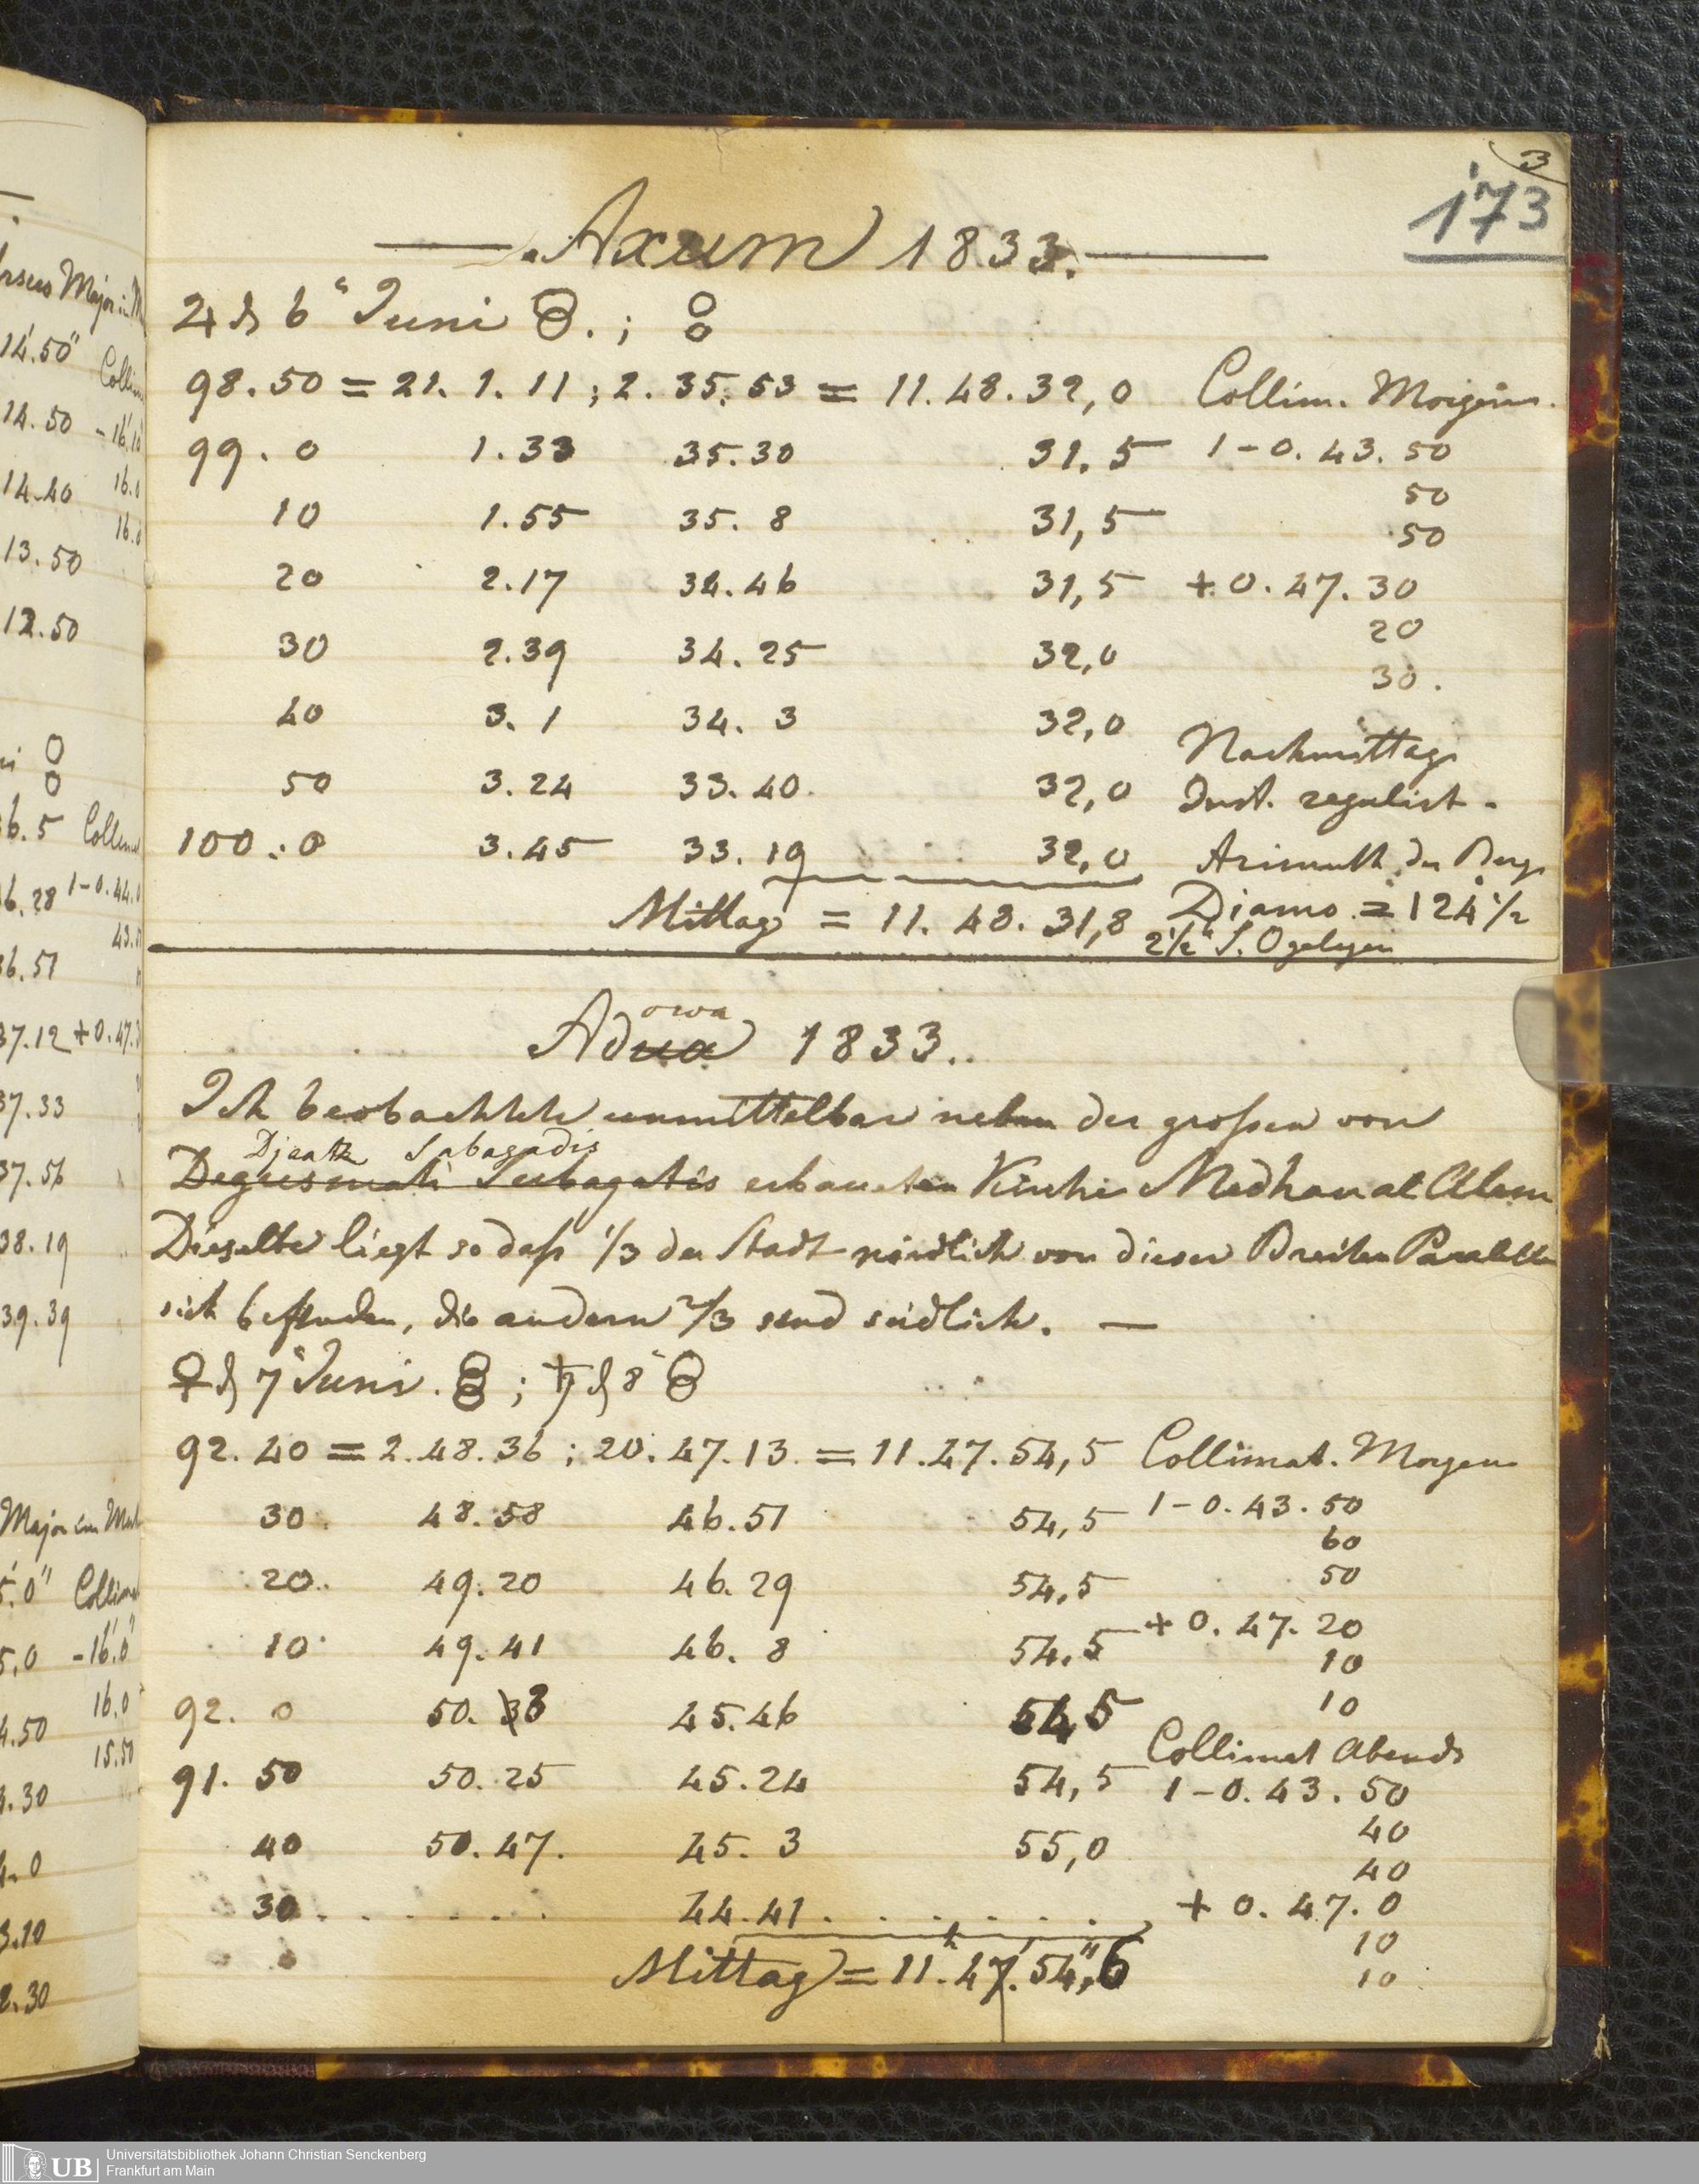 3
173
Axum 1833.
♃ d 6 Juni
98.50 = 21. 1. 11 ; 2. 35. 53 = 11. 48. 32,0 Collim. Morgens.
99. 0 1.33 35.30 31.5 1-0. 43. 50
50
10 1.55 35. 8 31,5
50
20 2.17 34.46 31,5 +0. 47. 30
20
30 2.39 34.25 32,0
30.
40 3. 1 34. 3 32,0
Nachmittag
50 3.24 33.40. 32,0 Inst. regulirt.
100. 0 3.45 33.19 32,0 Azimuth der Berge
Mittag = 11. 48. 31,8 Djamo = 124 1/2
2 1/2 S.O gelegen
owa
Adua 1833..
Ich beobachtete unmittelbar neben der großen von
Djaatz Sabagadis
Degusmati Subagatis erbauten Kirche Medhanat Alem
Dieselbe liegt so daß 1/3 der Stadt nördlich von dieser Breiten Parallele
sich befinden, die andern 2/3 sind südlich. —
♀ d 7 Juni. ; ♄ d 8
92. 40 = 2.48.36 ; 20. 47. 13. = 11.47.54,5 Collimat. Morgens
30. 48.58 46.51 54,5 1-0. 43. 50
60
20.. 49.20 46.29 54,5 50
+0. 47. 20
10 49.41 46. 8 54.5 10
92. 0 50. 3 45.46 54,5 10
Collimat Abends
91. 50 50.25 45.24 54,5 1-0. 43. 50
40 50.47. 45. 3 55,0 40
40
30 . . . . . . 44.41 . . . . . . +0. 47. 0
10
Mittag = 11.h 47.' 54,"6 10
Universitätsbibliothek Johann Christian Senckenberg
UB Frankfurt am Main